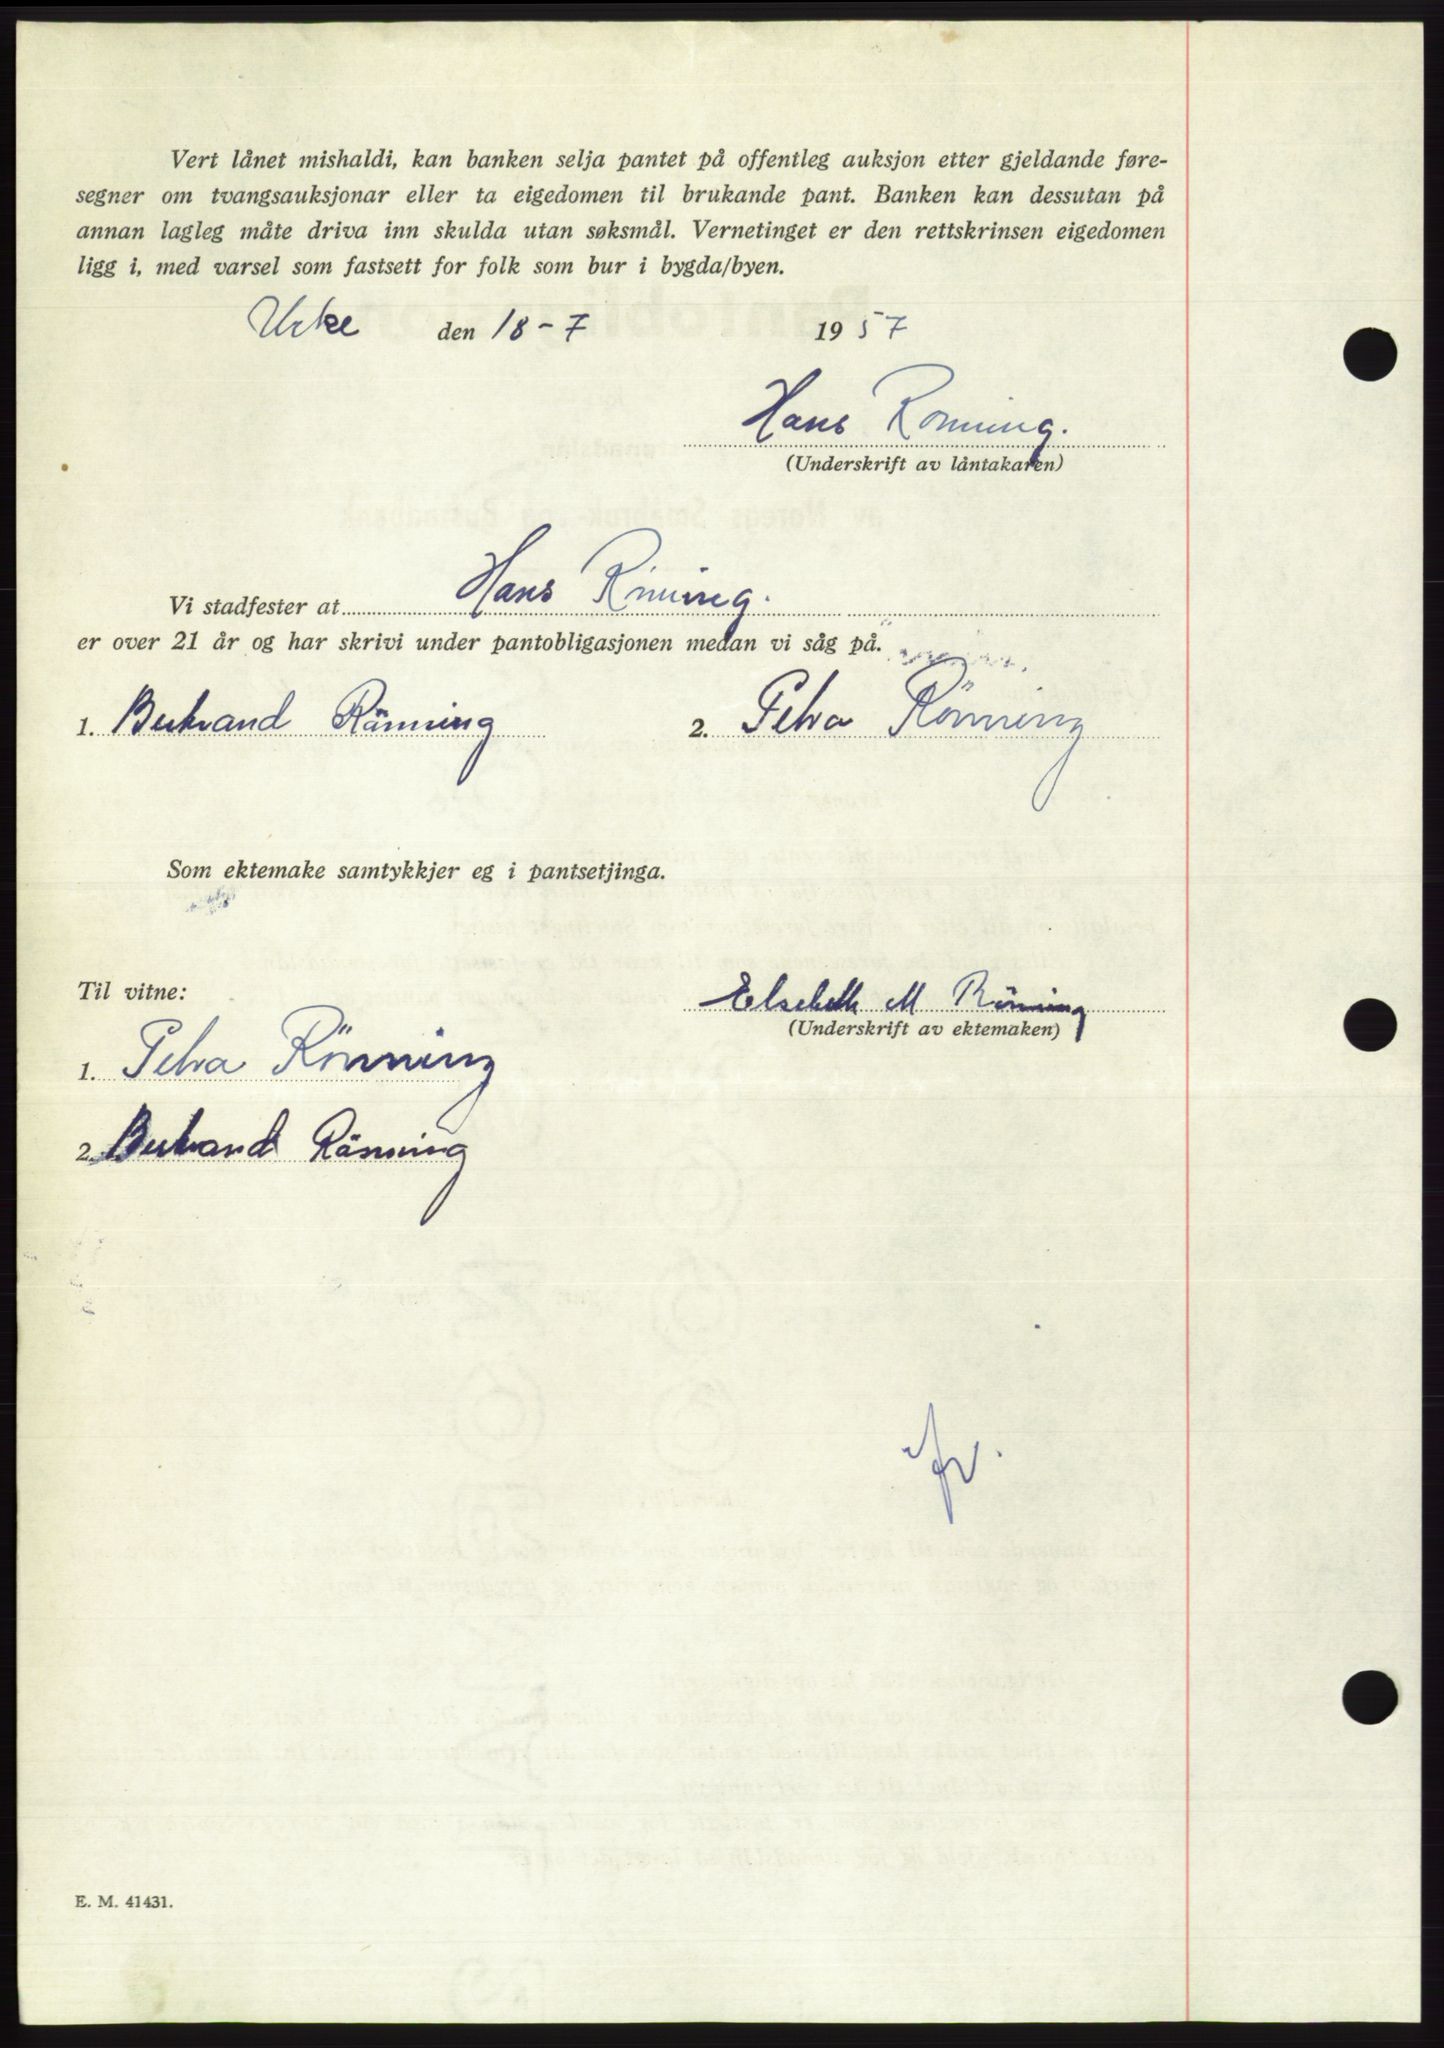 Vert lånet mishaldi, kan banken selja pantet på offentleg auksjon etter gjeldande føre-
segner om tvangsauksjonar eller ta eigedomen til brukande pant. Banken kan dessutan på
annan lagleg måte driva inn skulda utan søksmål. Vernetinget er den rettskrinsen eigedomen
ligg i, med varsel som fastsett for folk som bur i bygda/byen.
Urke den 18-7 1957
Hans Rönning.
(Underskrift av låntakaren)
Vi stadfester at Hans Rönning.
er over 21 år og har skrivi under pantobligasjonen medan vi såg på.
1. Bertrand Rönning 2. Petra Rönning
Som ektemake samtykkjer eg i pantsetjinga.
Til vitne:
Elsebeth M Rönning
(Underskrift av ektemaken)
1. Petra Rönning
2. Bertrand Rönning
E. M. 41431.